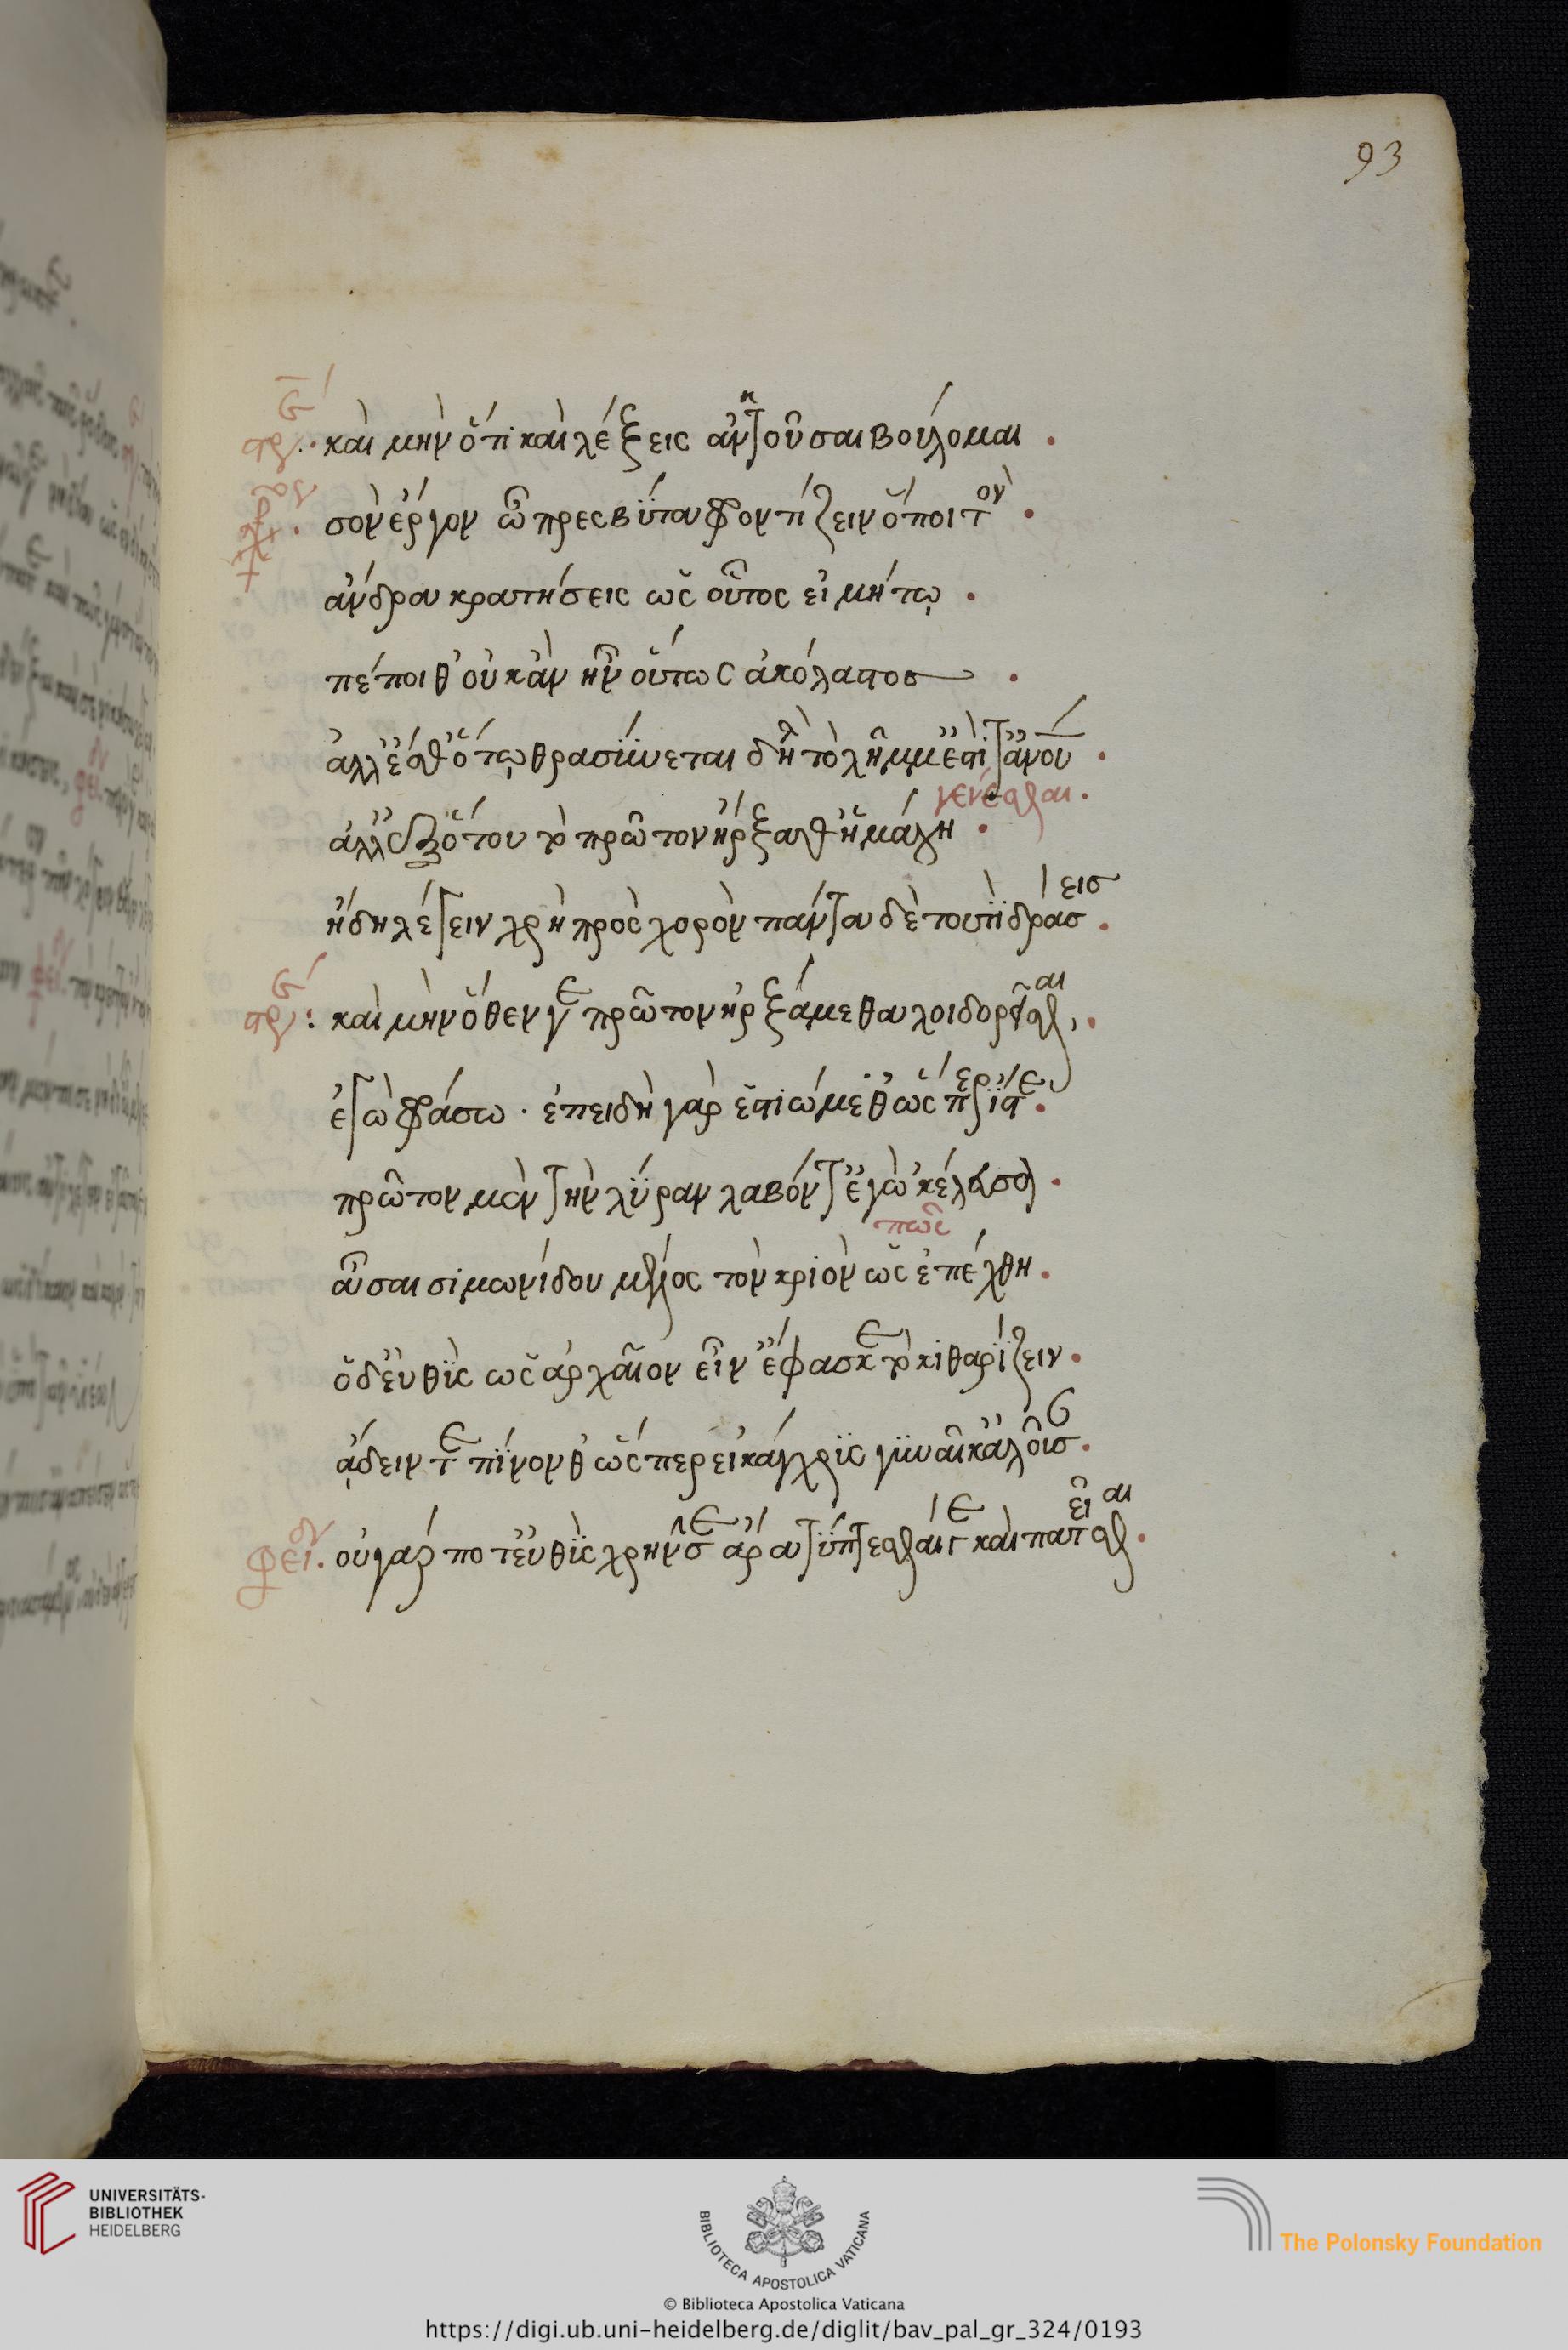 93
στρε. καὶ μὴν ὅτι καὶ λέξεις ἀκοῦσαι βούλομαι.
χορ. σὸν ἔργον ὦ πρεσβύτα φροντίζειν ὅποι τὸν.
ἄνδρα κρατήσεις ὡς οὗτος εἰ μή τῳ.
πέποιθ' οὐκ ἂν ἦν οὕτως ἀκόλαστος.
ἀλλ' ἔσθ' ὅτῳ θρασύνεται δῆλὸν τὸ λῆμμ' ἐστὶ τἀνου.
ἀλλ' ἐξ ὅτου τὸ πρῶτον ἤρξαθ' ἡ μάχη γενέσθαι.
ἤδη λέγειν χρὴ πρὸς χορὸν πάντα δὲ τουτὶ δράσεις.
στρε: καὶ μὴν ὅθεν γε πρῶτον ἠρξάμεθα λοιδορεῖσθαι.
ἐγὼ φράσω. ἐπειδὴ γὰρ εἱστιώμεθ' ὥσπερ ἴστε.
πρῶτον μὲν τὴν λύραν λαβόντ' ἐγὼ 'κέλευσα.
ᾆσαι σιμωνίδου μέλος τὸν κριὸν ὡς ἐπέχθη.
πῶς
ὁ δ' εὐθὺς ὡς ἀρχαῖον εἶν' ἔφασκε τὸ κιθαρίζειν.
ᾄδειν τε πίνονθ' ὥσπερεὶ κάγχρυς γυναῖκ'
φει. οὐ γάρ ποτ' εὐθὺς χρῆν σε ἄρα τύπτεσθαί τε καὶ πατεῖσθαι.
UNIVERSITÄTS-
BIBLIOTHEK
HEIDELBERG
BIBLIOTECA APOSTOLICA VATICANA
The Polonsky Foundation
© Biblioteca Apostolica Vaticana
https://digi.ub.uni-heidelberg.de/diglit/bav_pal_gr_324/0193